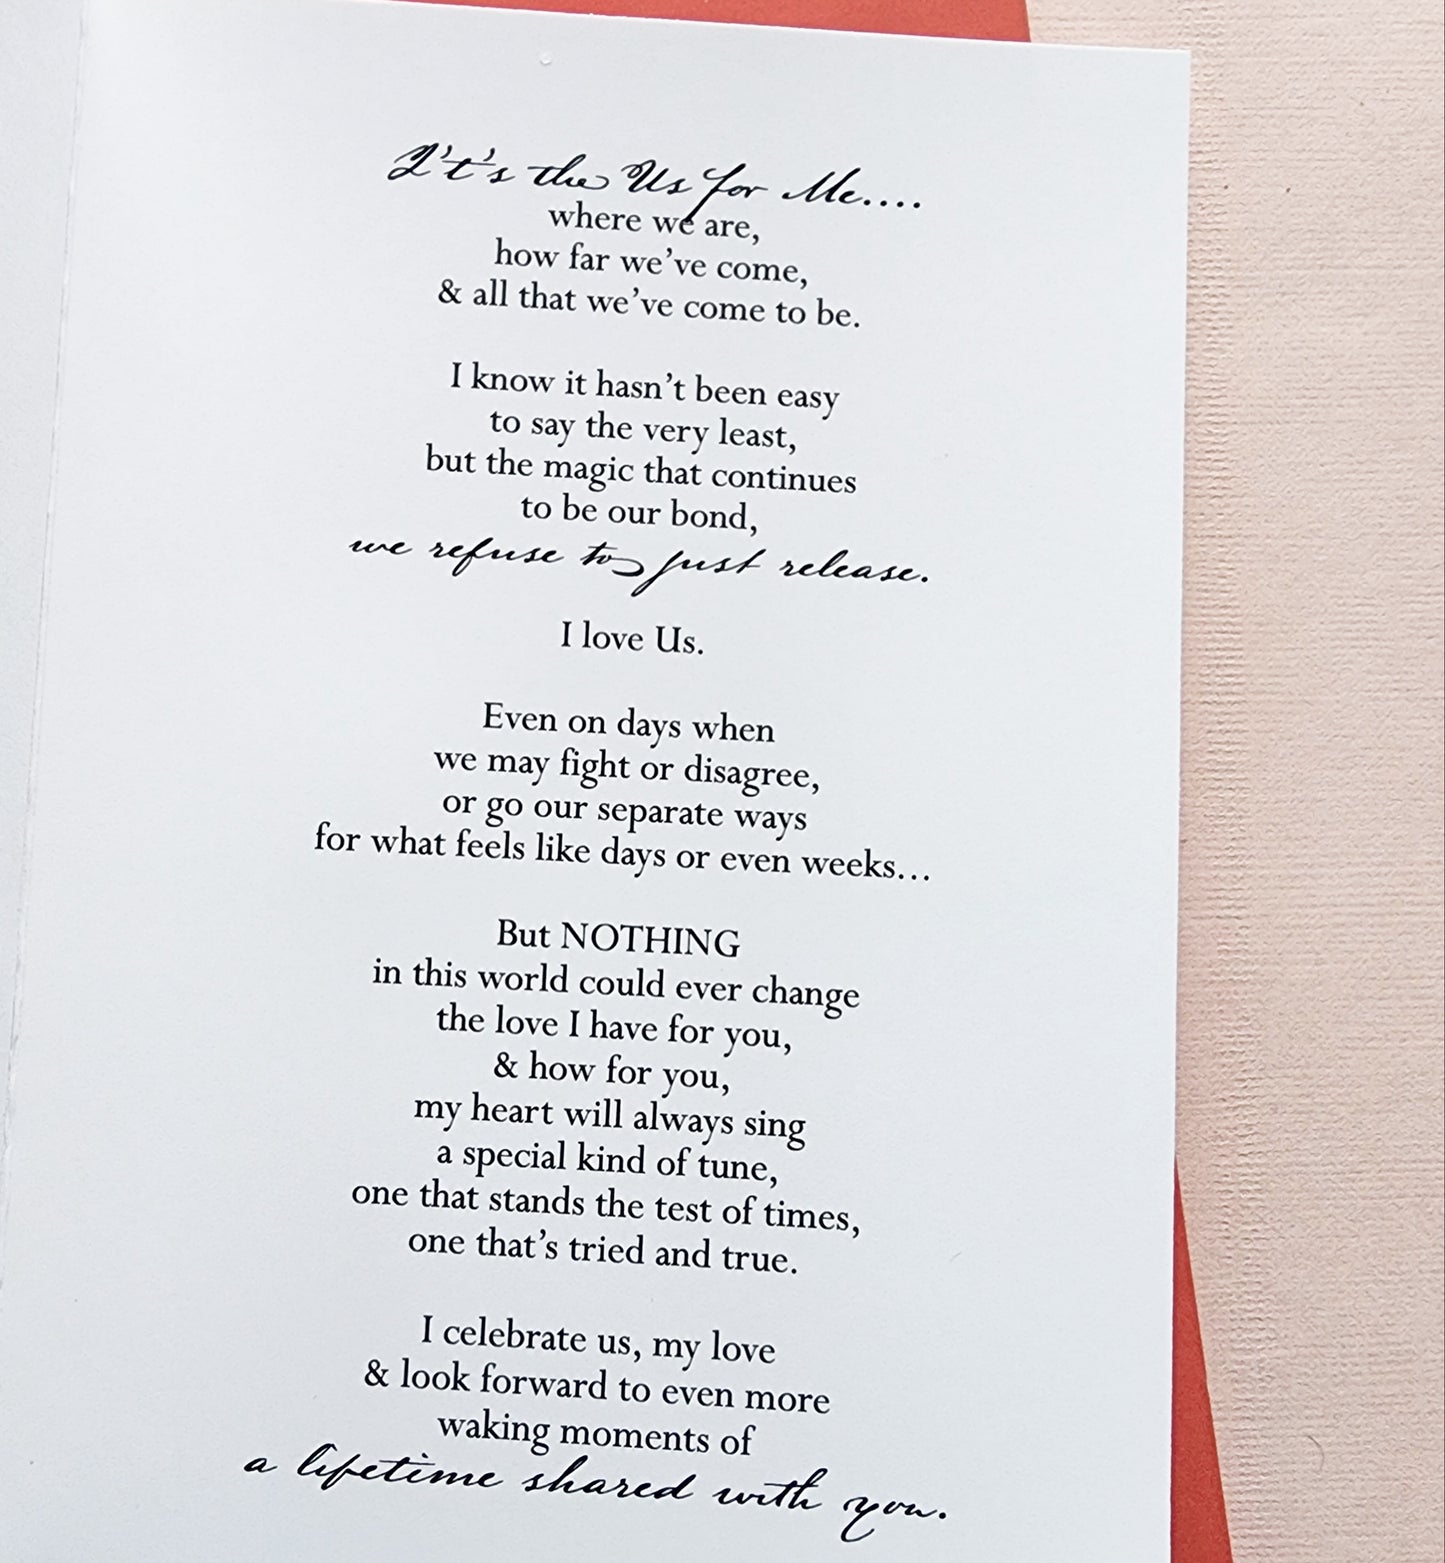 It's the Us for Me....
where we are,
how far we've come,
& all that we've come to be.
I know it hasn't been easy
to say the very least,
but the magic that continues
to be our bond,
we refuse to just release.
I love Us.
Even on days when
we may fight or disagree,
or go our separate ways
for what feels like days or even weeks...
But NOTHING
in this world could ever change
the love I have for you,
& how for you,
my heart will always sing
a special kind of tune,
one that stands the test of times,
one that's tried and true.
I celebrate us, my love
& look forward to even more
waking moments of
a lifetime shared with you.